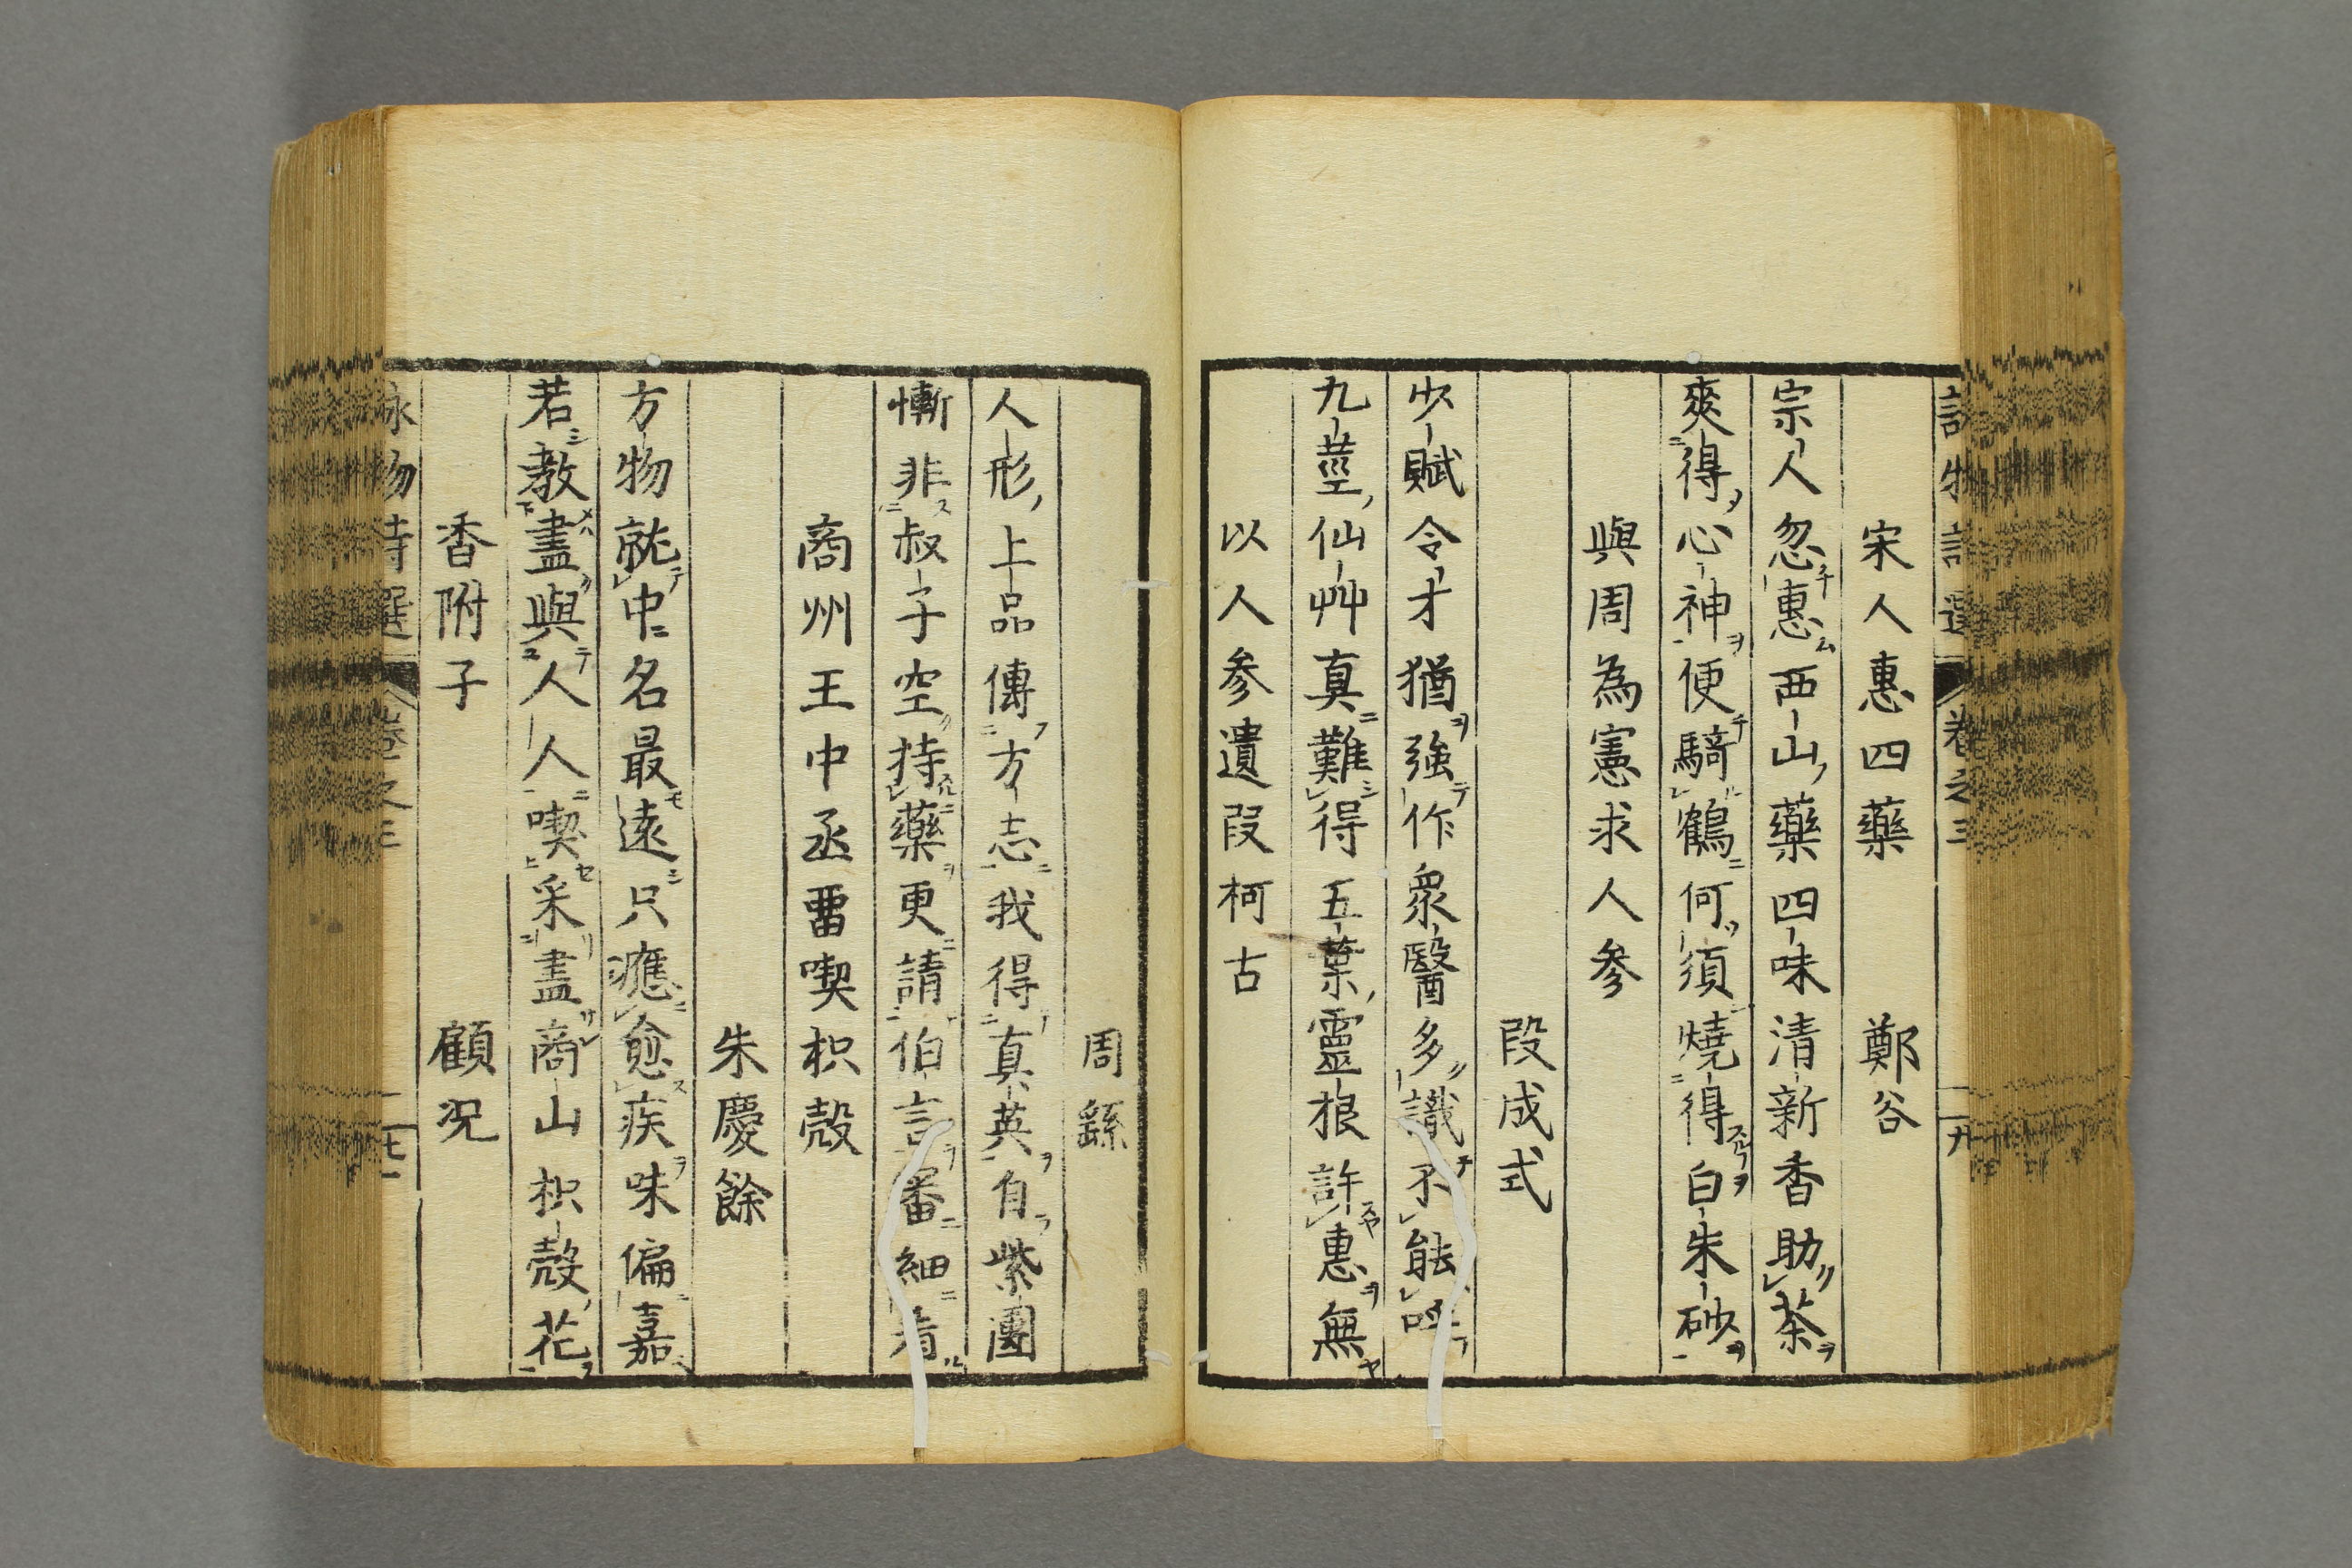 宋人惠四藥　鄭谷
宗人忽惠西山藥四味清新香助茶
爽得心神便騎鶴何須燒得白朱砂
與周為憲求人參
段成式
少賦令才猶強作衆醫多識不能呼
九莖仙艸真難得五葉靈根許惠無
以人參遺段柯古
周繇
人形上品傳方志我得真英自紫團
慚非叔子空持藥更請伯言審細看
商州王中丞畱喫枳殼
朱慶餘
方物就中名最遠只應愈疾味偏嘉
若教盡與人人喫采盡商山枳殼花
香附子　顧況
詠物詩選　卷之三